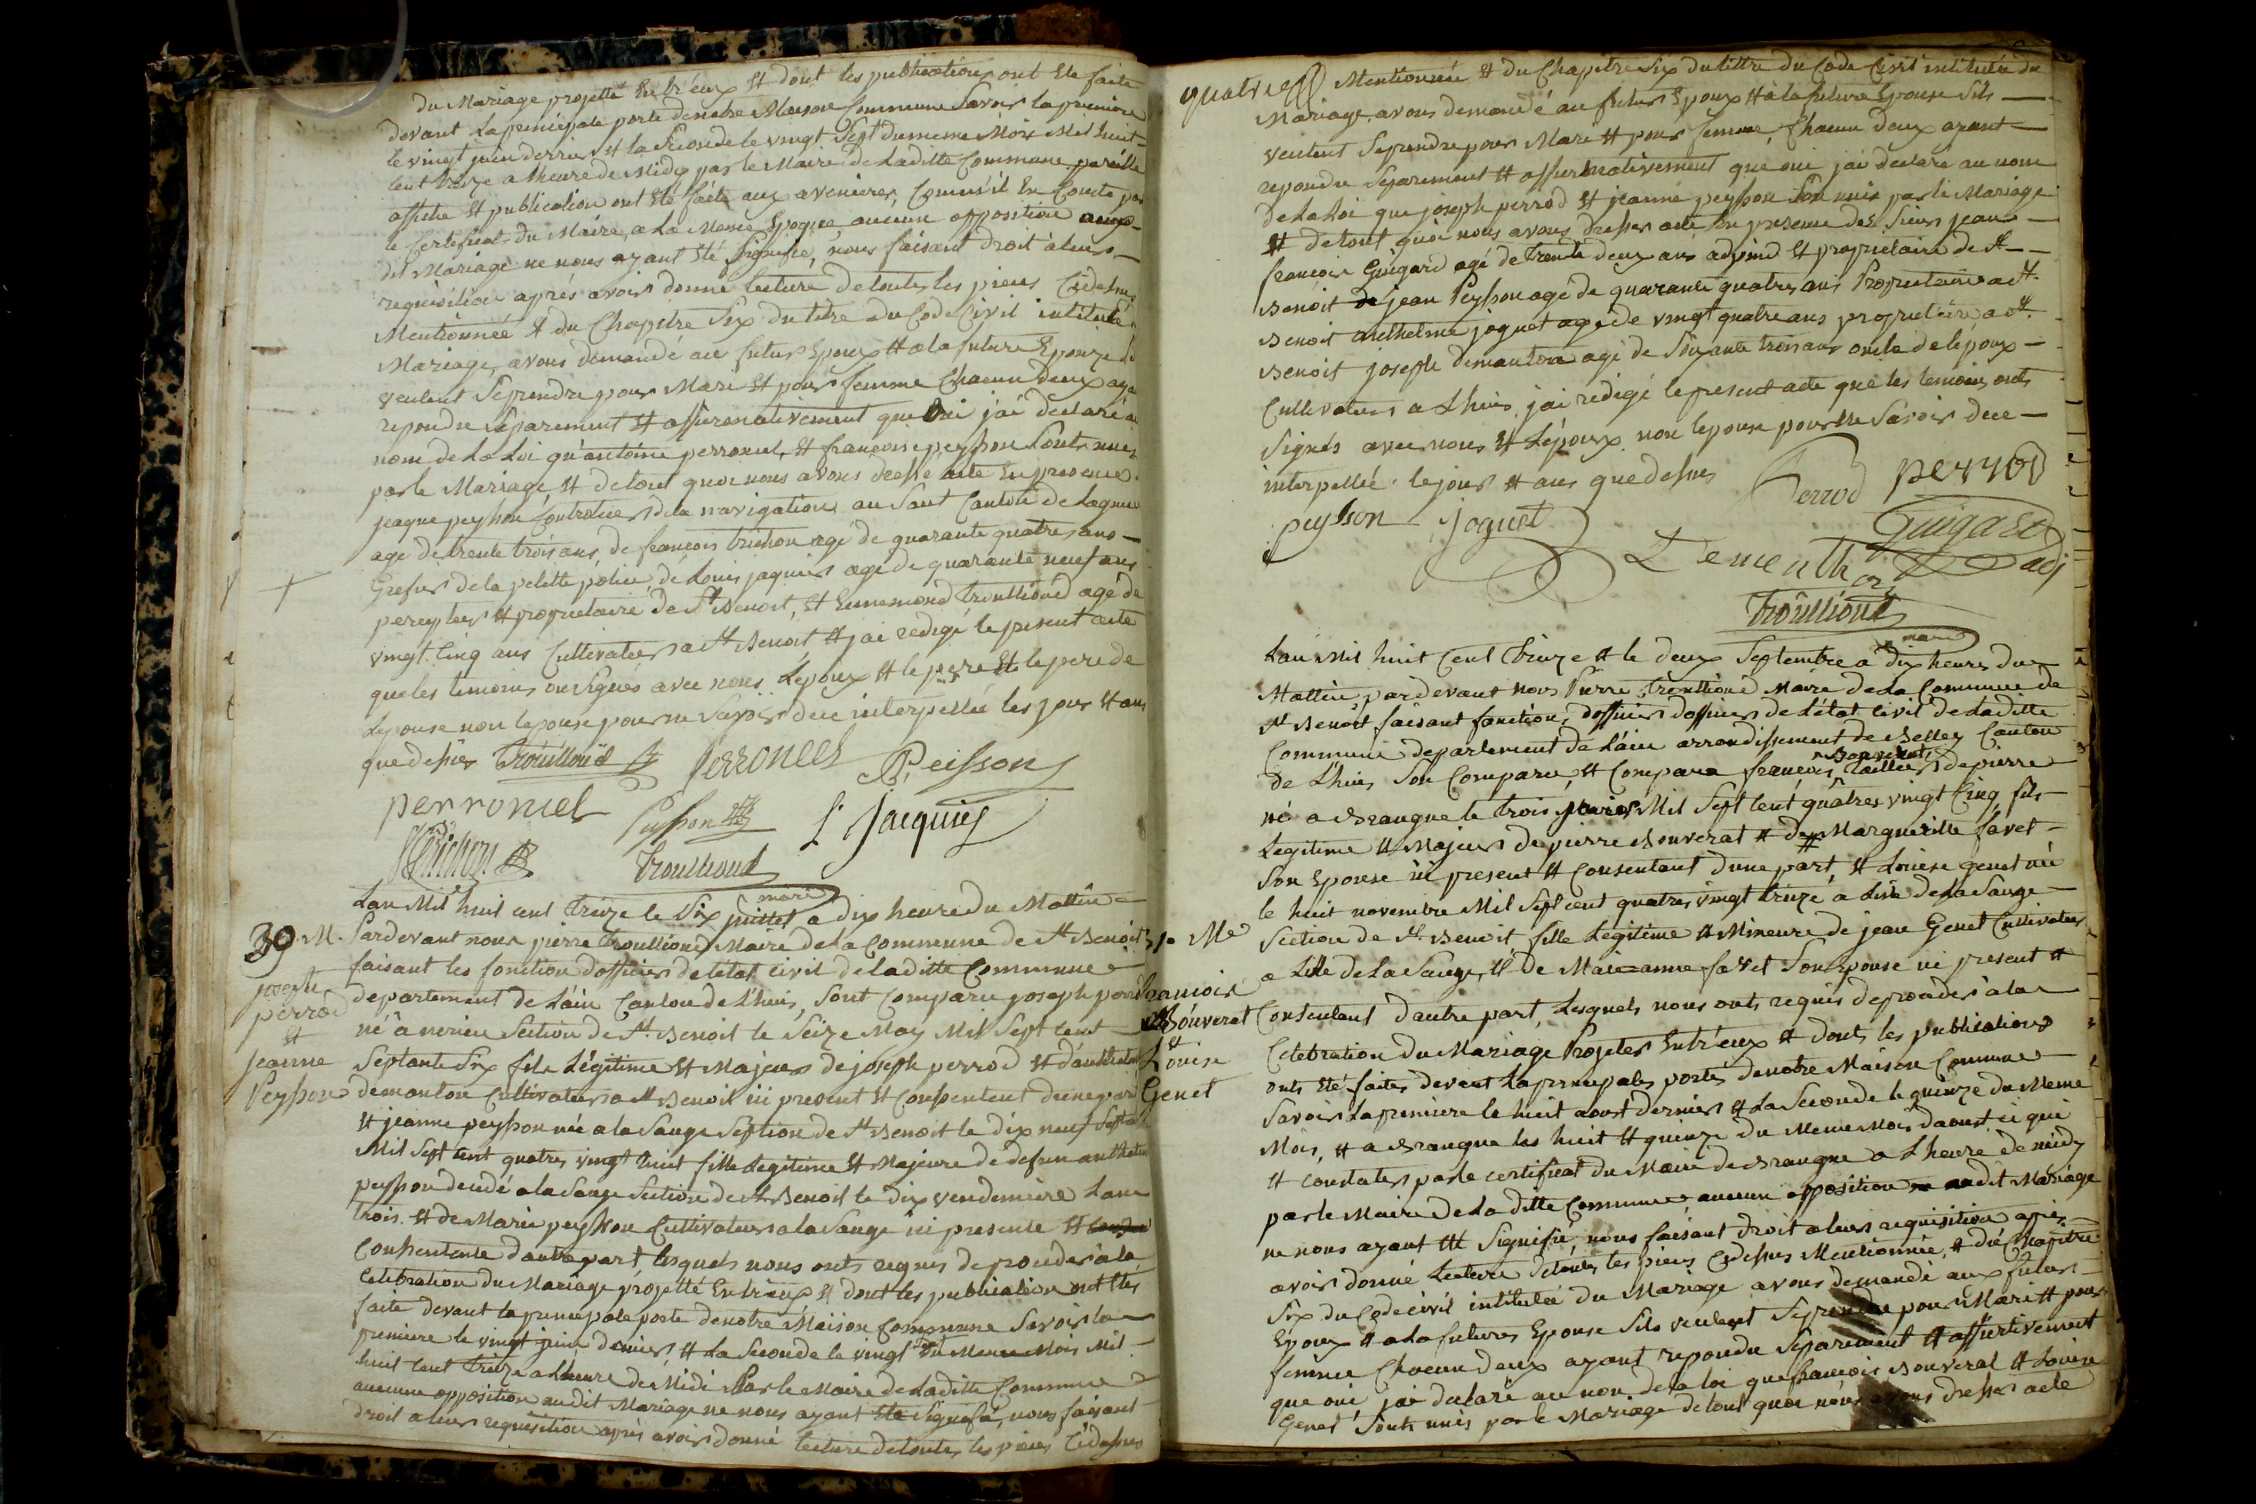 du Mariage projetté Entr'eux Et dont les publications ont Ete faite
devant la principale porte de notre Maison Commune Savoir la premiere
le vingt juin dernier Et la Seconde le vingt Sept du meme Mois Mil huit
cent treize a l'heure de Midy par le Maire de laditte Commune pareille
affiche Et publication ont Eté faite aux avenieres, Comme il En Conste par
le Certificat du Maire, a la Meme Epoque, aucune opposition auxo
dit Mariage ne nous ayant Eté Signifié, nous faisant droit à leurs
requisition aprés avoir donné lecture de toutes les pieces Cydesus
Mentionnée & du Chapitre Six du titre du Code Civil intitulé
Mariage, avons demandé au futur Epoux & a la future Epouze S'il
veulent Se prendre pour Mari Et pour femme Chacun deux aya
repondu Séparement Et affirmativement que Oui j'ai declaré a
nom de La Loi qu'antoine perronel, Et françoise peysson Sont unis
par le Mariage Et de tout quoi nous avons dressé acte En presence
jaque peysson Controleur de la navigation au Saut Canton de Lagnieu
agé de trente trois ans, de françois trichon agé de quarante quatres ans
Grefier de la petitte police, de Louis jaquier agé de quarante neuf ans
percepteur & proprietaire de St Benoit, Et Ennemond Trouilloud agé de
vingt Cinq ans Cultivateur a St Benoit & j'ai redigé le present acte
que les temoins ont Signés avec nous Lepoux & le pere Et le pere de
Lepouse non lepouse pour ne Savoir de ce interpellée les jour & an
que dessus Trouilloud Perronel Peisson
perroniel Peysson L. Jacquier
Trichon Trouilloud
maire
Lan Mil huit cent treize le Six juillet a dix heure du Mattin
30 M.
Pardevant nous pierre Trouilloud Maire de la Commune de St Benoit
faisant les fonction d'officier de letat civil de laditte Commune
joseph
perrod
&
jeanne
Peysson
departement de Lain Canton de Lhuis, Sont Comparu joseph perrod
né a nerieu Section de St. Benoit le Seize May Mil Sept cent
Septante Six fils Légitime Et Majeur de joseph perrod Et d'anthelmette
demanton Cultivateur a St Benoit ici present Et Consentent dune part
Et jeanne peysson née a la Sauge Section de St Benoit le dix neuf Septbre
Mil Sept cent quatres vingt huit fille Legitime Et Majeure de defun anthelme
peysson decedé a la Sauge Section de St Benoit le dix vendemiere Lan
trois & de Marie peysson Cultivateur a la Sauge ici presente Et
Consentente d'autre part, lesquels nous onts requis de proceder à la
Celebration du Mariage projetté Entr'eux Et dont les publication ont Etés
faite devant la principale porte de notre Maison Commune Savoir la
premiere le vingt juin dernier & La Seconde le vingt Sept du Meme Mois Mil
huit cent treize a Lheure de Midi Par le Maire de laditte Commune
aucune opposition audit Mariage ne nous ayant Eté Signifié, nous faisant
droit a leur requisition aprés avoir donné lecture de toutes les pieces Cidessus
quatre Mentionnée & du Chapitre Six du tittre du Code Civil intitulée du
Mariage avons demandé au futur Epoux & à la future Epouse Sils
veulent Se prendre pour Mari & pour femme, Chacun deux ayant
repondu Séparement & affirmativement que oui j'ai déclaré au nom
de La Loi que joseph perrod Et jeanne peysson Son unis par le Mariage
Et de tout quoi nous avons dresser acte En presence des Sieurs jean
françois Guigard agé de Trente deux ans adjoind Et proprietaire de St
Benoit de jean Peysson agé de quarante quatres ans Proprietaire a St.
Benoit anthelme joguet agé de vingt quatre ans proprietaire a St.
Benoit joseph demanton agé de Soixante trois ans oncle de l'époux
Cultivateur a Lhuis, j'ai redigé le present acte que les temoins onts
Signés avec nous Et Lépoux non lepouse pour ne Savoir de ce
interpellée. le jour & an que dessus Perrod perrod
peysson joguet Guigard
Dementhon adj
Trouilloud
maire
Lan Mil huit Cent Treize & le deux Septembre a dix heures du
Mattin, par devant Nous Pierre Trouilloud Maire de La Commune de
St Benoit faisant fonctions d'officier d'officier de L'état Civil de Laditte
Commune departement de Lain arrondissement de Belley Canton
de Lhuis, Son Comparu, Et Comparu françois Bouverat Tailleur de pierre
né a Brangue le trois Mil Sept Cent quatres vingt Cinq fils
Legitime & Majeur de pierre Bouverat & de Margueritte favet
Son Epouse ici present & Consentant d'une part, & Louise genet née
le huit novembre Mil Sept cent quatres vingt treize a Lisle de La Sauge
31. Me
Section de St. Benoit, fille Légitime & Mineure de jean Genet Cultivateur
a Lille de La Sauge, & de Marianne favet Son Epouse ici present &
francois
Bouverat
Et
Louise
Genet
Consentant d'autre part, Lesquels nous onts requis de proceder à la
Célébration du Mariage Projeter Entr'eux & dont les publications
onts Eté faites devant La principales portes de notre Maison Commune
Savoir La premiere le huit aoust dernier & La Seconde le quinze du Meme
Mois, & a Brangue les huit & quinze du Meme Mois daoust ci qui
Et constater par le certificat du Maire de Brangue a L'heure de midy
par le Maire de La ditte Commune aucune opposition audit Mariage
ne nous ayant Eté Signifié, nous faisant droit a leurs requisition aprés
avoir donné Lecture de toutes les pieces Cydessus Mentionnée & du Chapitre
Six du Code civil intitulée du Mariage avons demandé aux futur
Epoux & a La future Epouse Sils veulent Se prendre pour Mari & pour
femme Chacun deux ayant repondu Séparement & affirtivement
que oui j'ai declaré au nom de la loi que françois Bouverat & Louise
Genet Sonts unis par le Mariage de tout quoi nous avons dresser acte